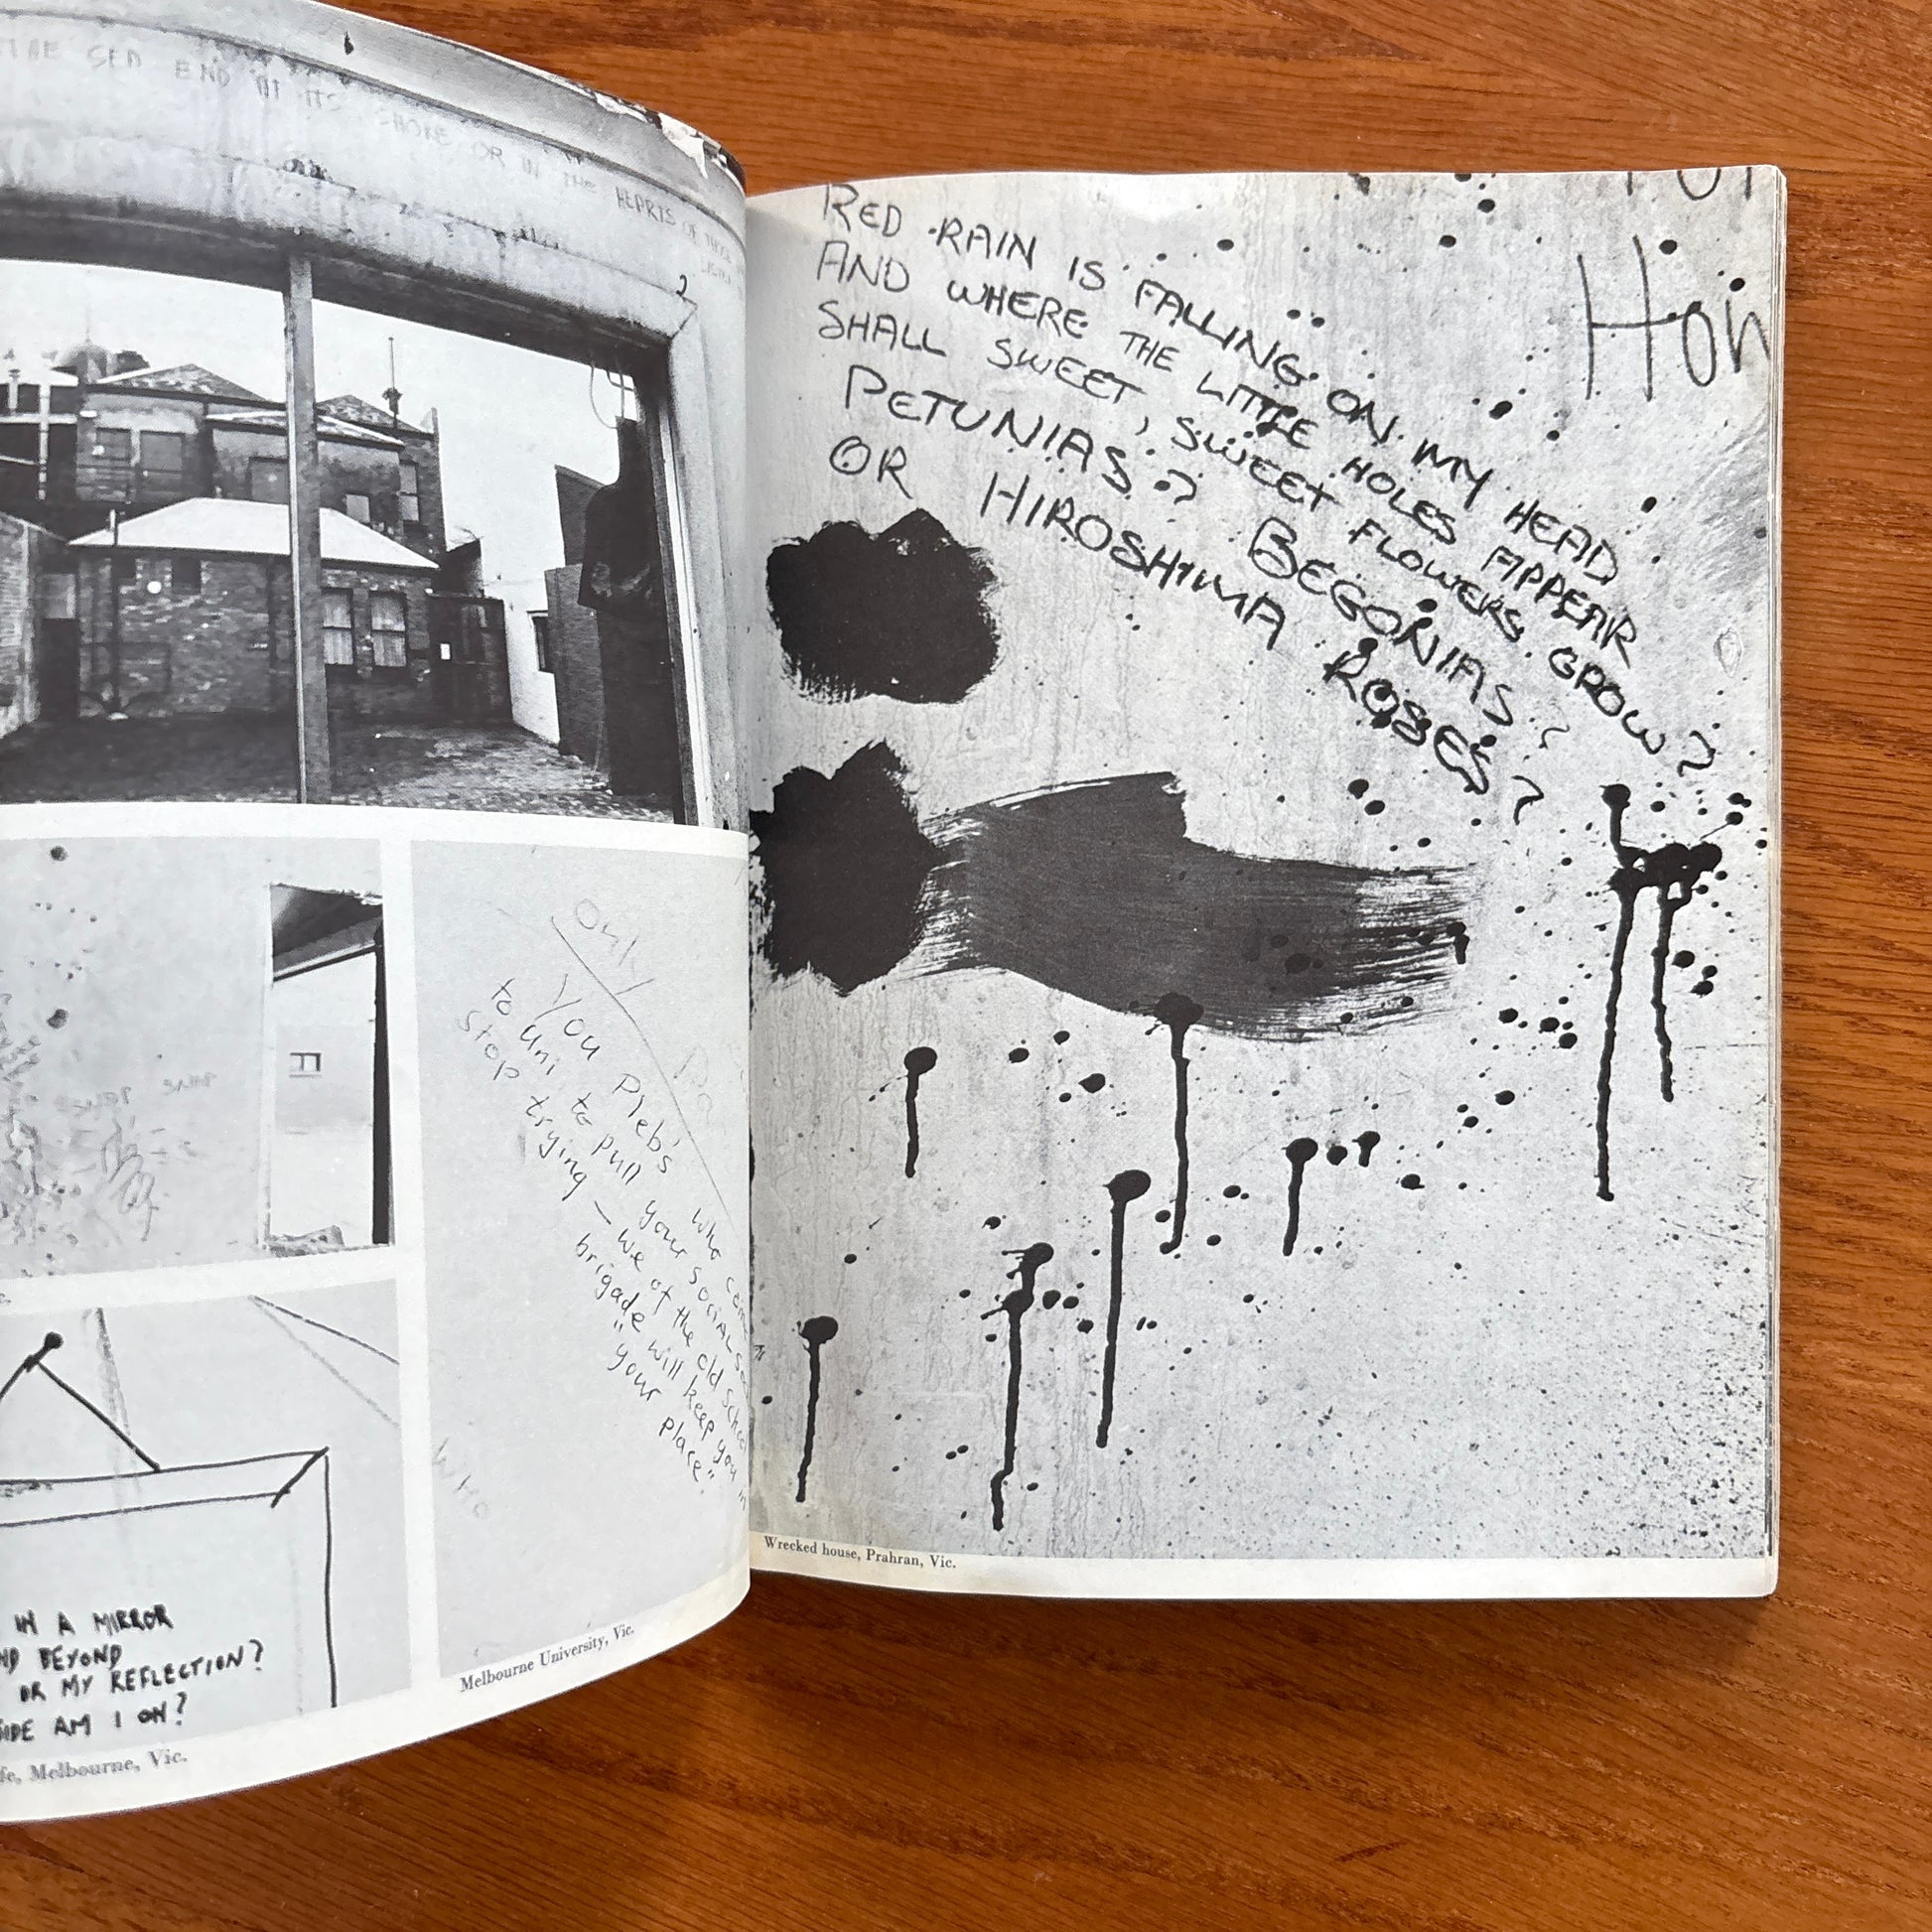 THE SEA END AT ITS SHORE OR IN THE HEARTS OF THOSE
2
SNAP SNAP
only
You Pleb's who com
to uni to pull your social s
stop trying – we of the old school
brigade will keep you in
"your place".
Who
Melbourne University, Vic.
IN A MIRROR
ND BEYOND
OR MY REFLECTION?
SIDE AM I ON?
fe, Melbourne, Vic.
RED RAIN IS FALLING ON MY HEAD
AND WHERE THE LITTLE HOLES APPEAR
SHALL SWEET, SWEET FLOWERS GROW?
PETUNIAS? BEGONIAS?
OR HIROSHIMA ROSES?
Hon
Wrecked house, Prahran, Vic.